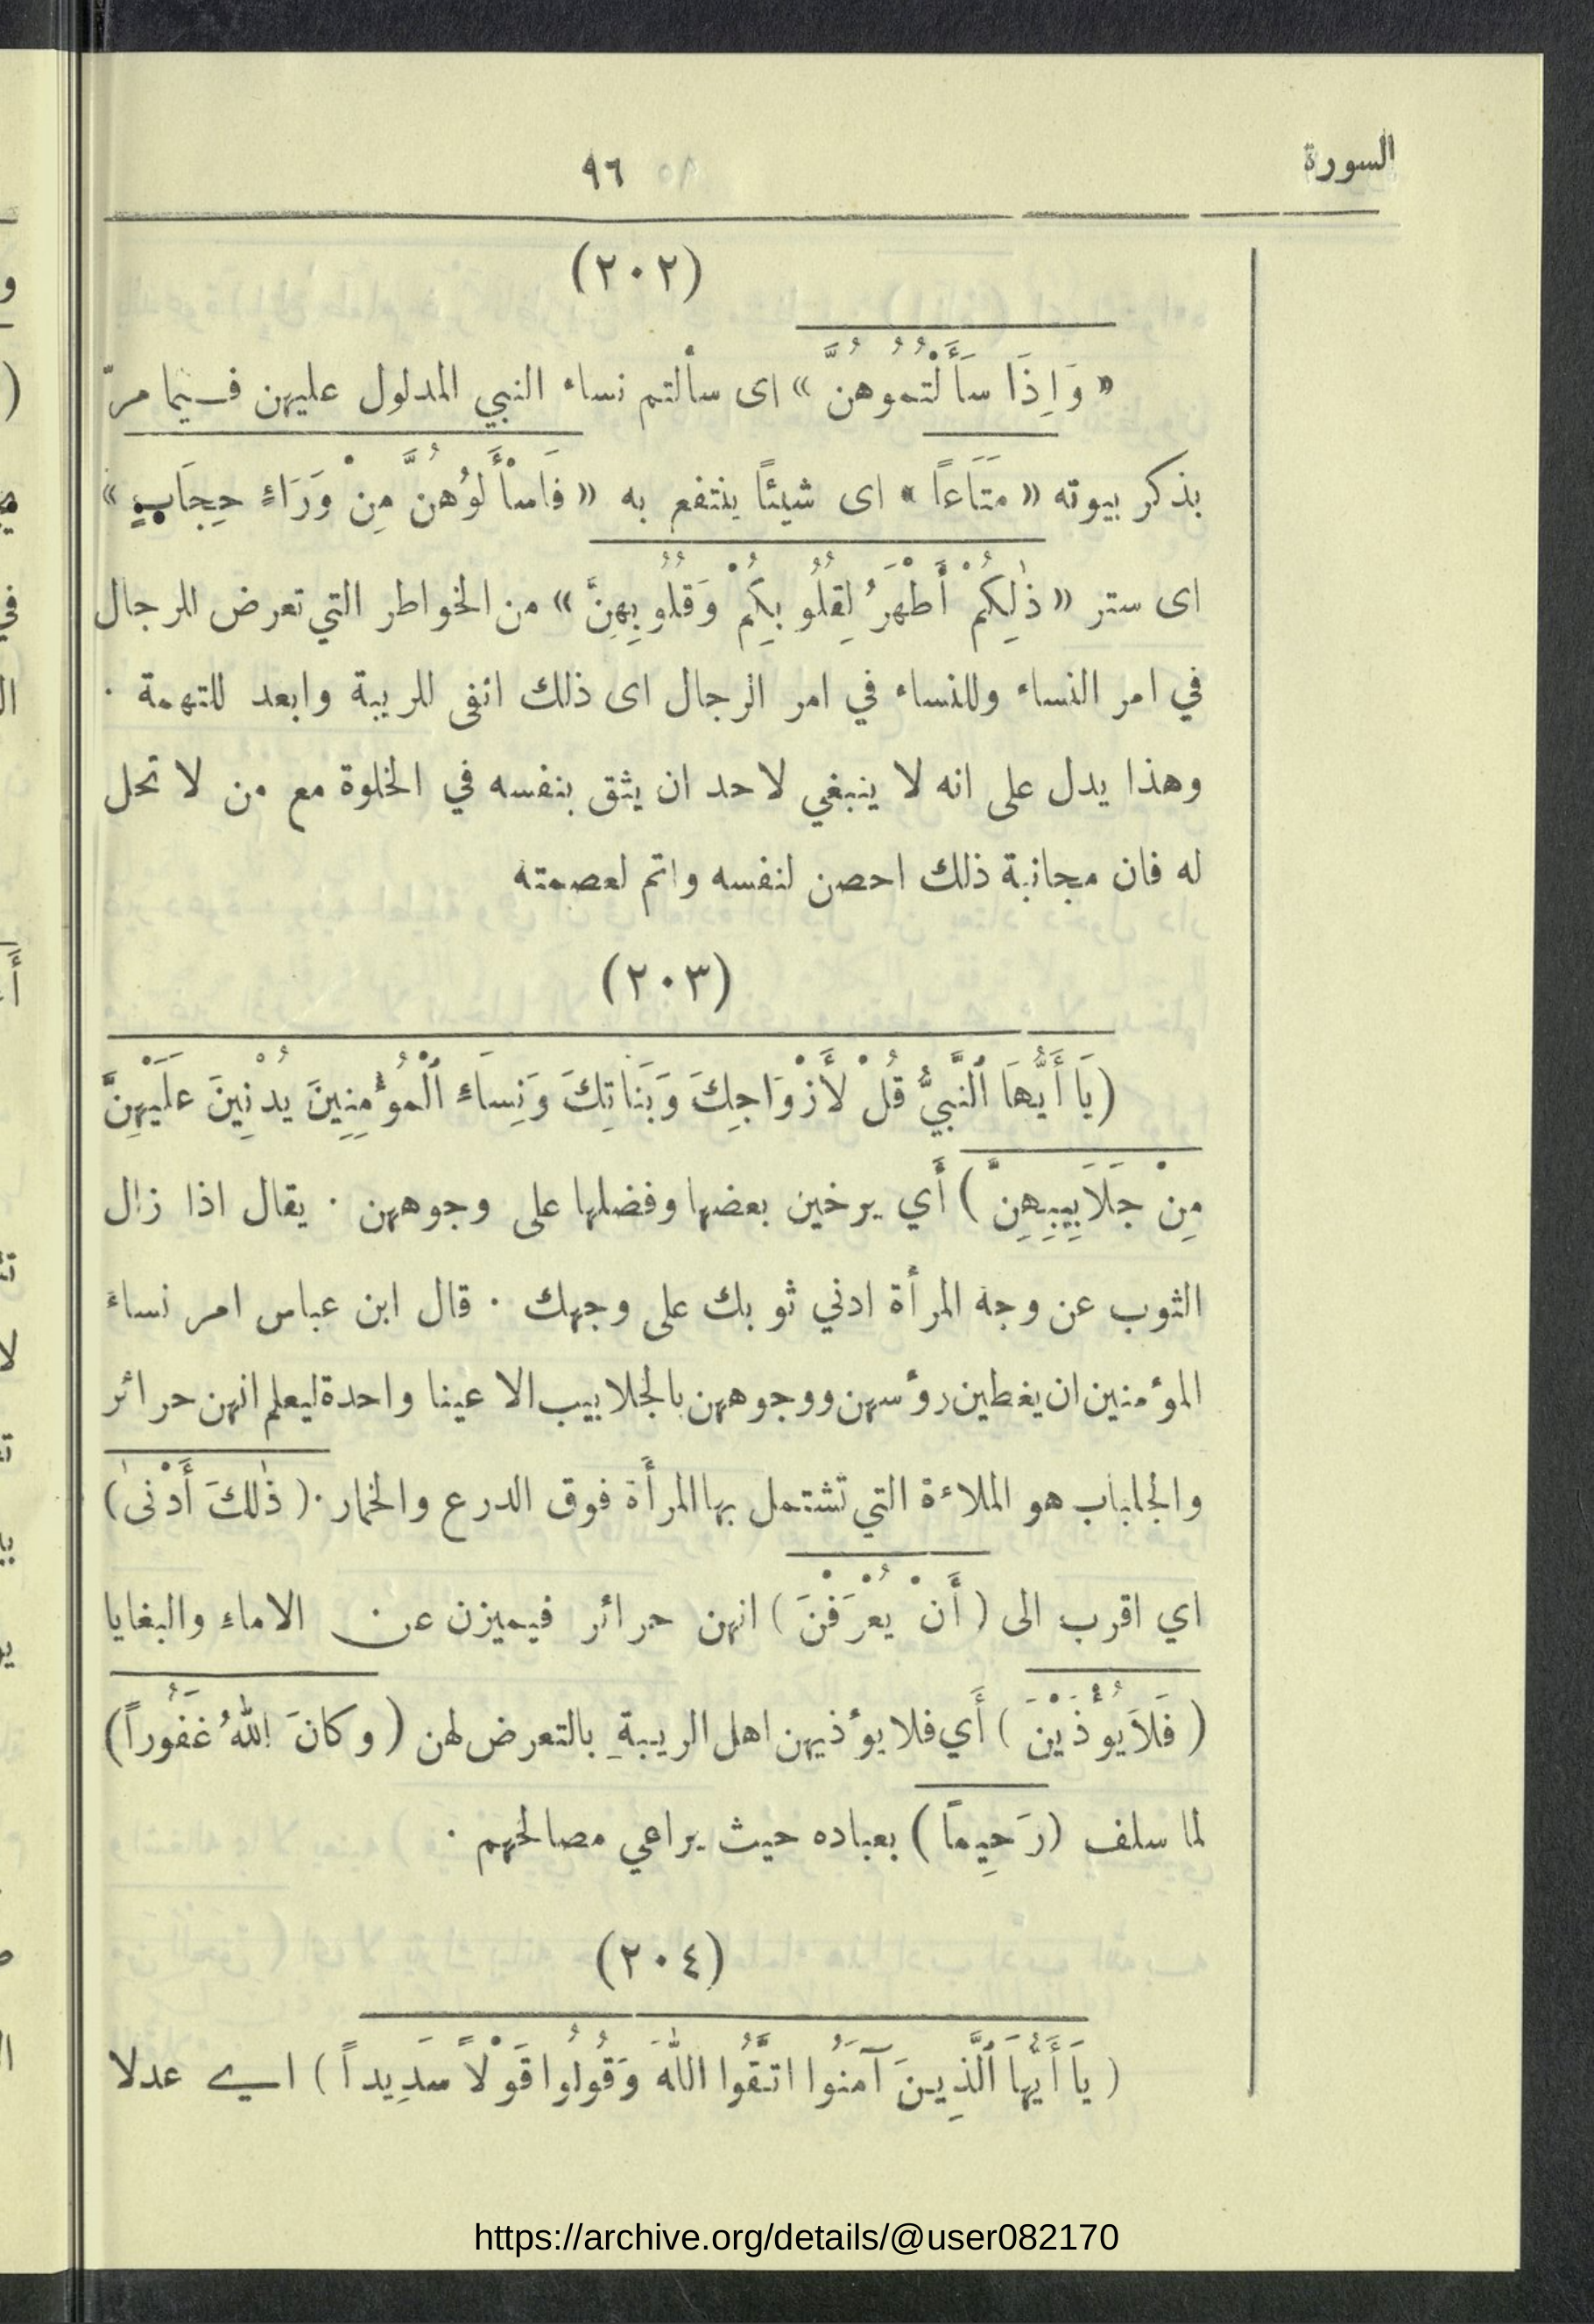 السورة
٩٦
(٢٠٢)
« وَإِذَا سَأَلْتُموُهُنَّ » اى سألتم نساء النبي المدلول عليهن فيما مرّ
بذكر بيوته « مَتَاعاً » اى شيئاً ينتفع به « فَاسْأَلوُهُنَّ مِنْ وَرَاءِ حِجَابٍ »
اى ستر « ذٰلِكُمْ أَطْهَرُ لِقُلُوبِكُمْ وَقُلُوبِهِنَّ » من الخواطر التي تعرض للرجال
في امر النساء وللنساء في امر الرجال اى ذلك انفى للريبة وابعد للتهمة .
وهذا يدل على انه لا ينبغي لاحد ان يثق بنفسه في الخلوة مع من لا تحل
له فان مجانبة ذلك احصن لنفسه واتم لعصمته
(٢٠٣)
(يَا أَيُّهَا ٱلنَّبِيُّ قُلْ لأَزْوَاجِكَ وَبَنَاتِكَ وَنِسَاءِ ٱلْمُؤْمِنِينَ يُدْنِينَ عَلَيْهِنَّ
مِنْ جَلَابِيبِهِنَّ ) أَي يرخين بعضها وفضلها على وجوههن . يقال اذا زال
الثوب عن وجه المرأة ادني ثوبك على وجهك . قال ابن عباس امر نساء
المؤمنين ان يغطين رؤسهن ووجوههن بالجلابيب الا عينا واحدة ليعلم انهن حرائر
والجلباب هو الملاءة التي تشتمل بها المرأَة فوق الدرع والخمار . ( ذٰلكَ أَدْنىٰ )
اي اقرب الى ( أَنْ يُعْرَفْنَ ) انهن حرائر فيميزن عن الاماء والبغايا
( فَلاَ يُؤْذَيْنَ ) أَي فلا يؤذيهن اهل الريبةِ بالتعرض لهن ( وكانَ اللهُ غَفُوراً )
لما سلف (رَحِيماً ) بعباده حيث يراعي مصالحهم .
(٢٠٤)
( يَا أَيُّهَا ٱلَّذِينَ آمَنُوا اتَّقُوا اللهَ وَقُولُوا قَوْلاً سَدِيداً ) اي عدلا
https://archive.org/details/@user082170